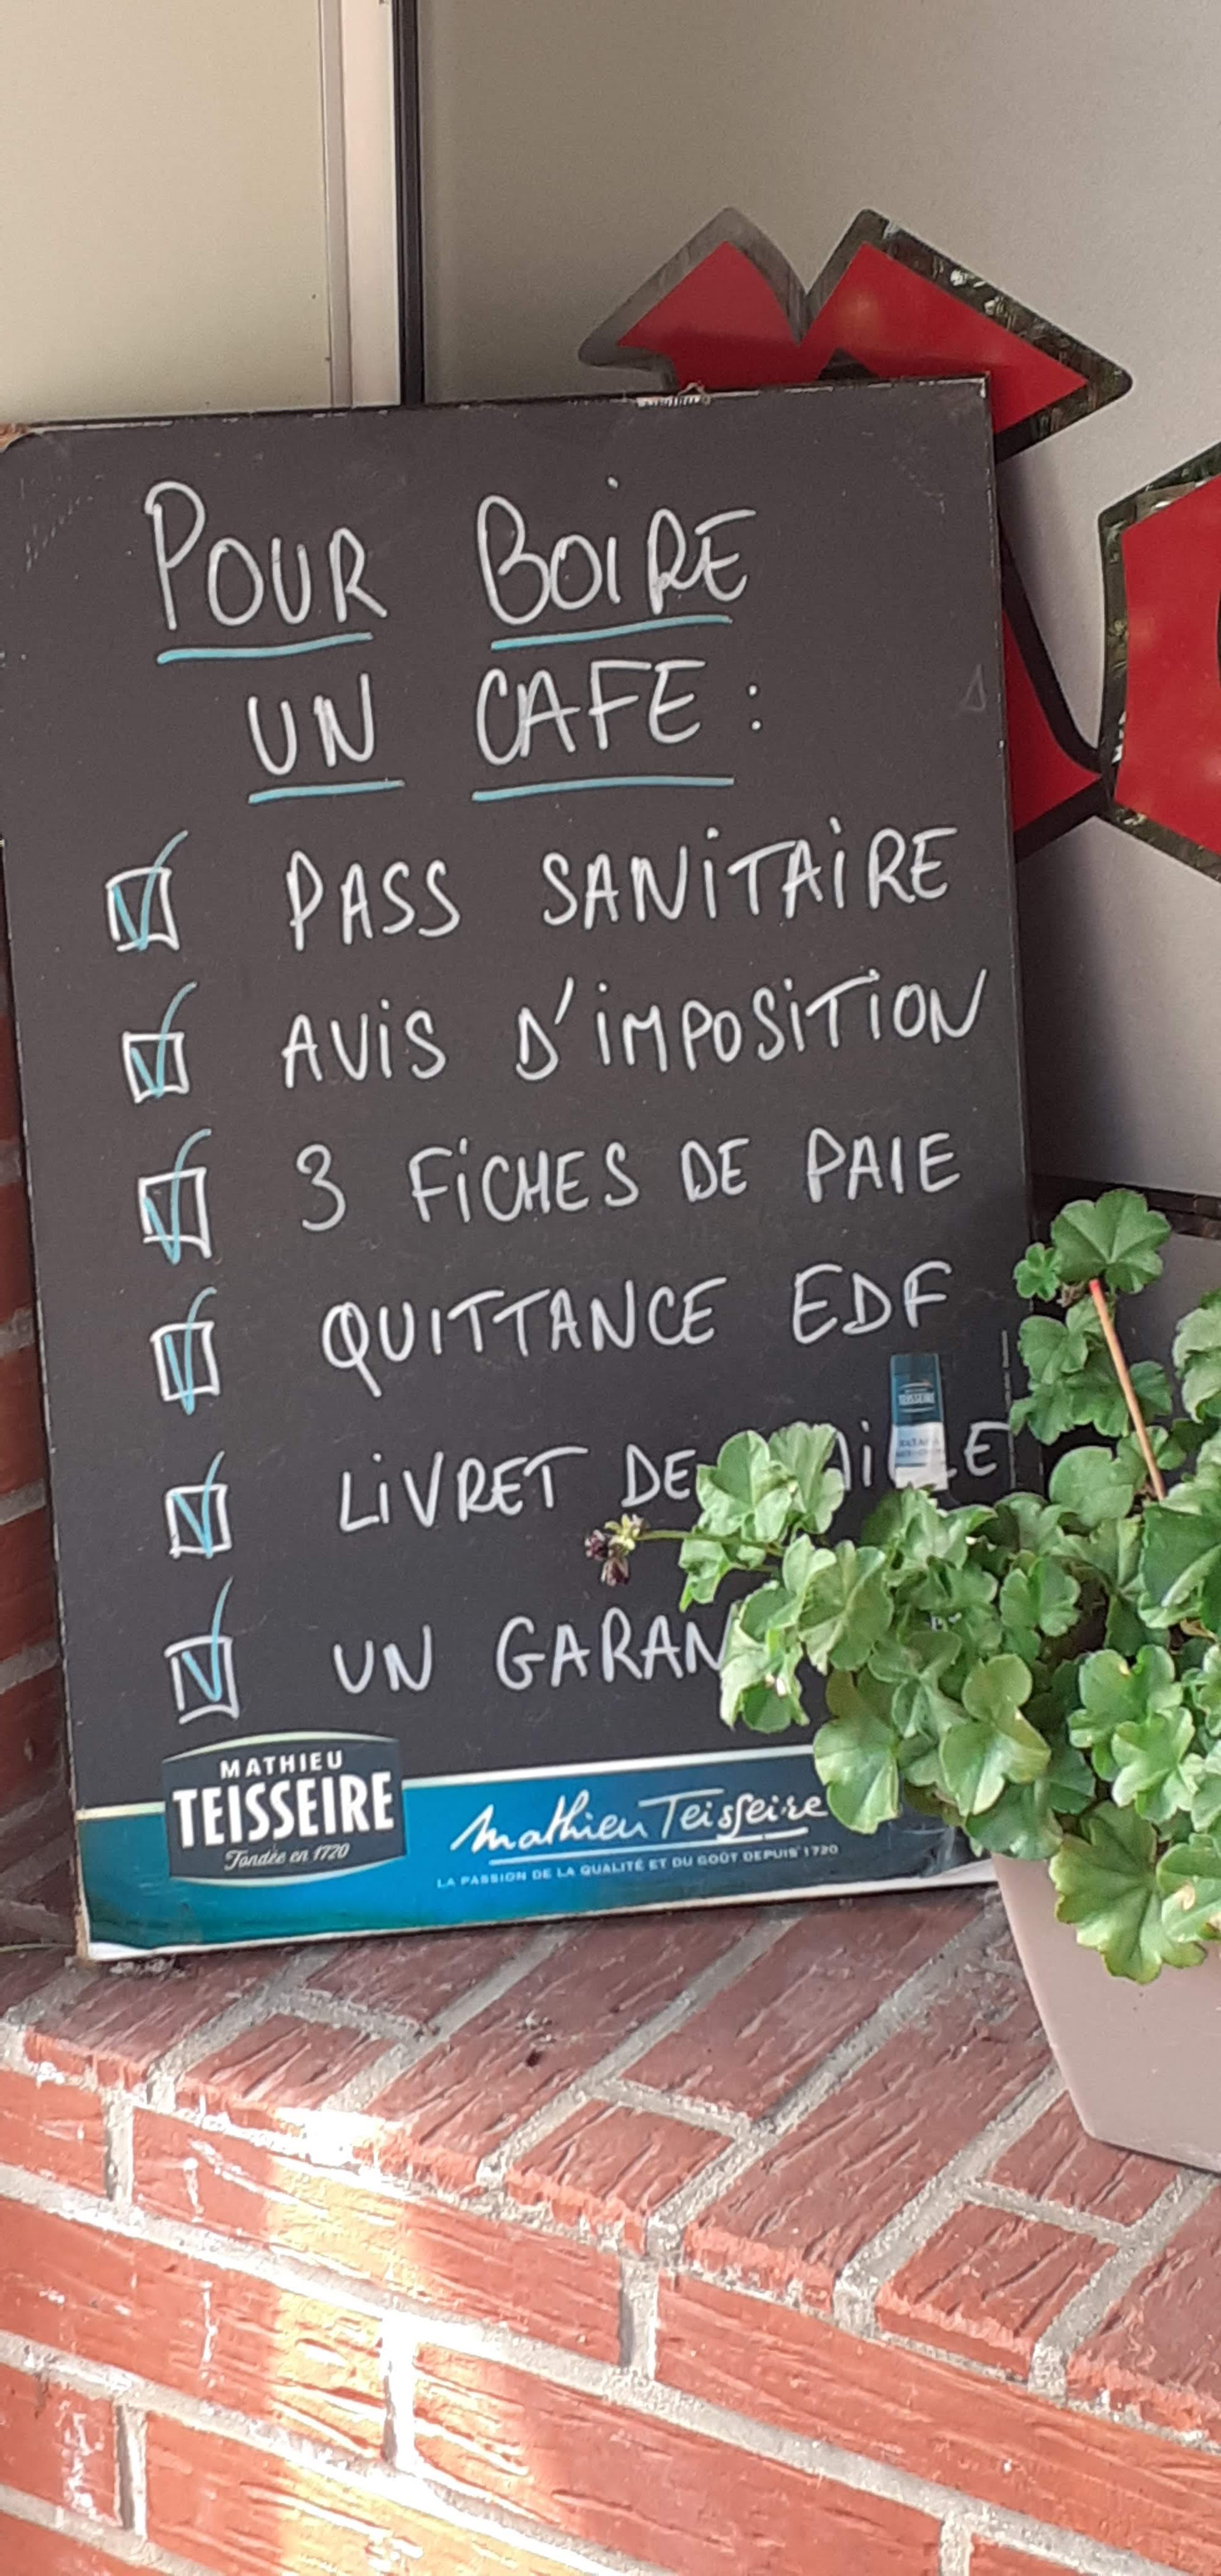 POUR BOIRE
UN CAFE :
PASS SANITAIRE
AVIS D'IMPOSITION
3 FICHES DE PAIE
QUITTANCE EDF
LIVRET DE
UN
MATHIEU
TEISSEIRE
Fondée en 1720
Mathieu Teisseire
LA PASSION DE LA QUALITÉ ET DU GOÛT DEPUIS 1720
TEISSEIRE